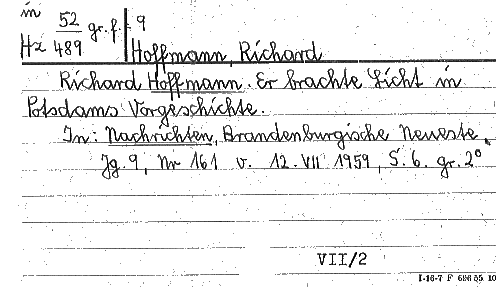 in
Hz 52/489 gr.f. - 9
Hoffmann, Richard
Richard Hoffmann. Er brachte Licht in
Potsdams Vorgeschichte.
In: Nachrichten, Brandenburgische Neueste.
Jg. 9, Nr 161 v. 12. VII. 1959, S. 6. gr. 2°
VII/2
I-16-7 F 696 55 10